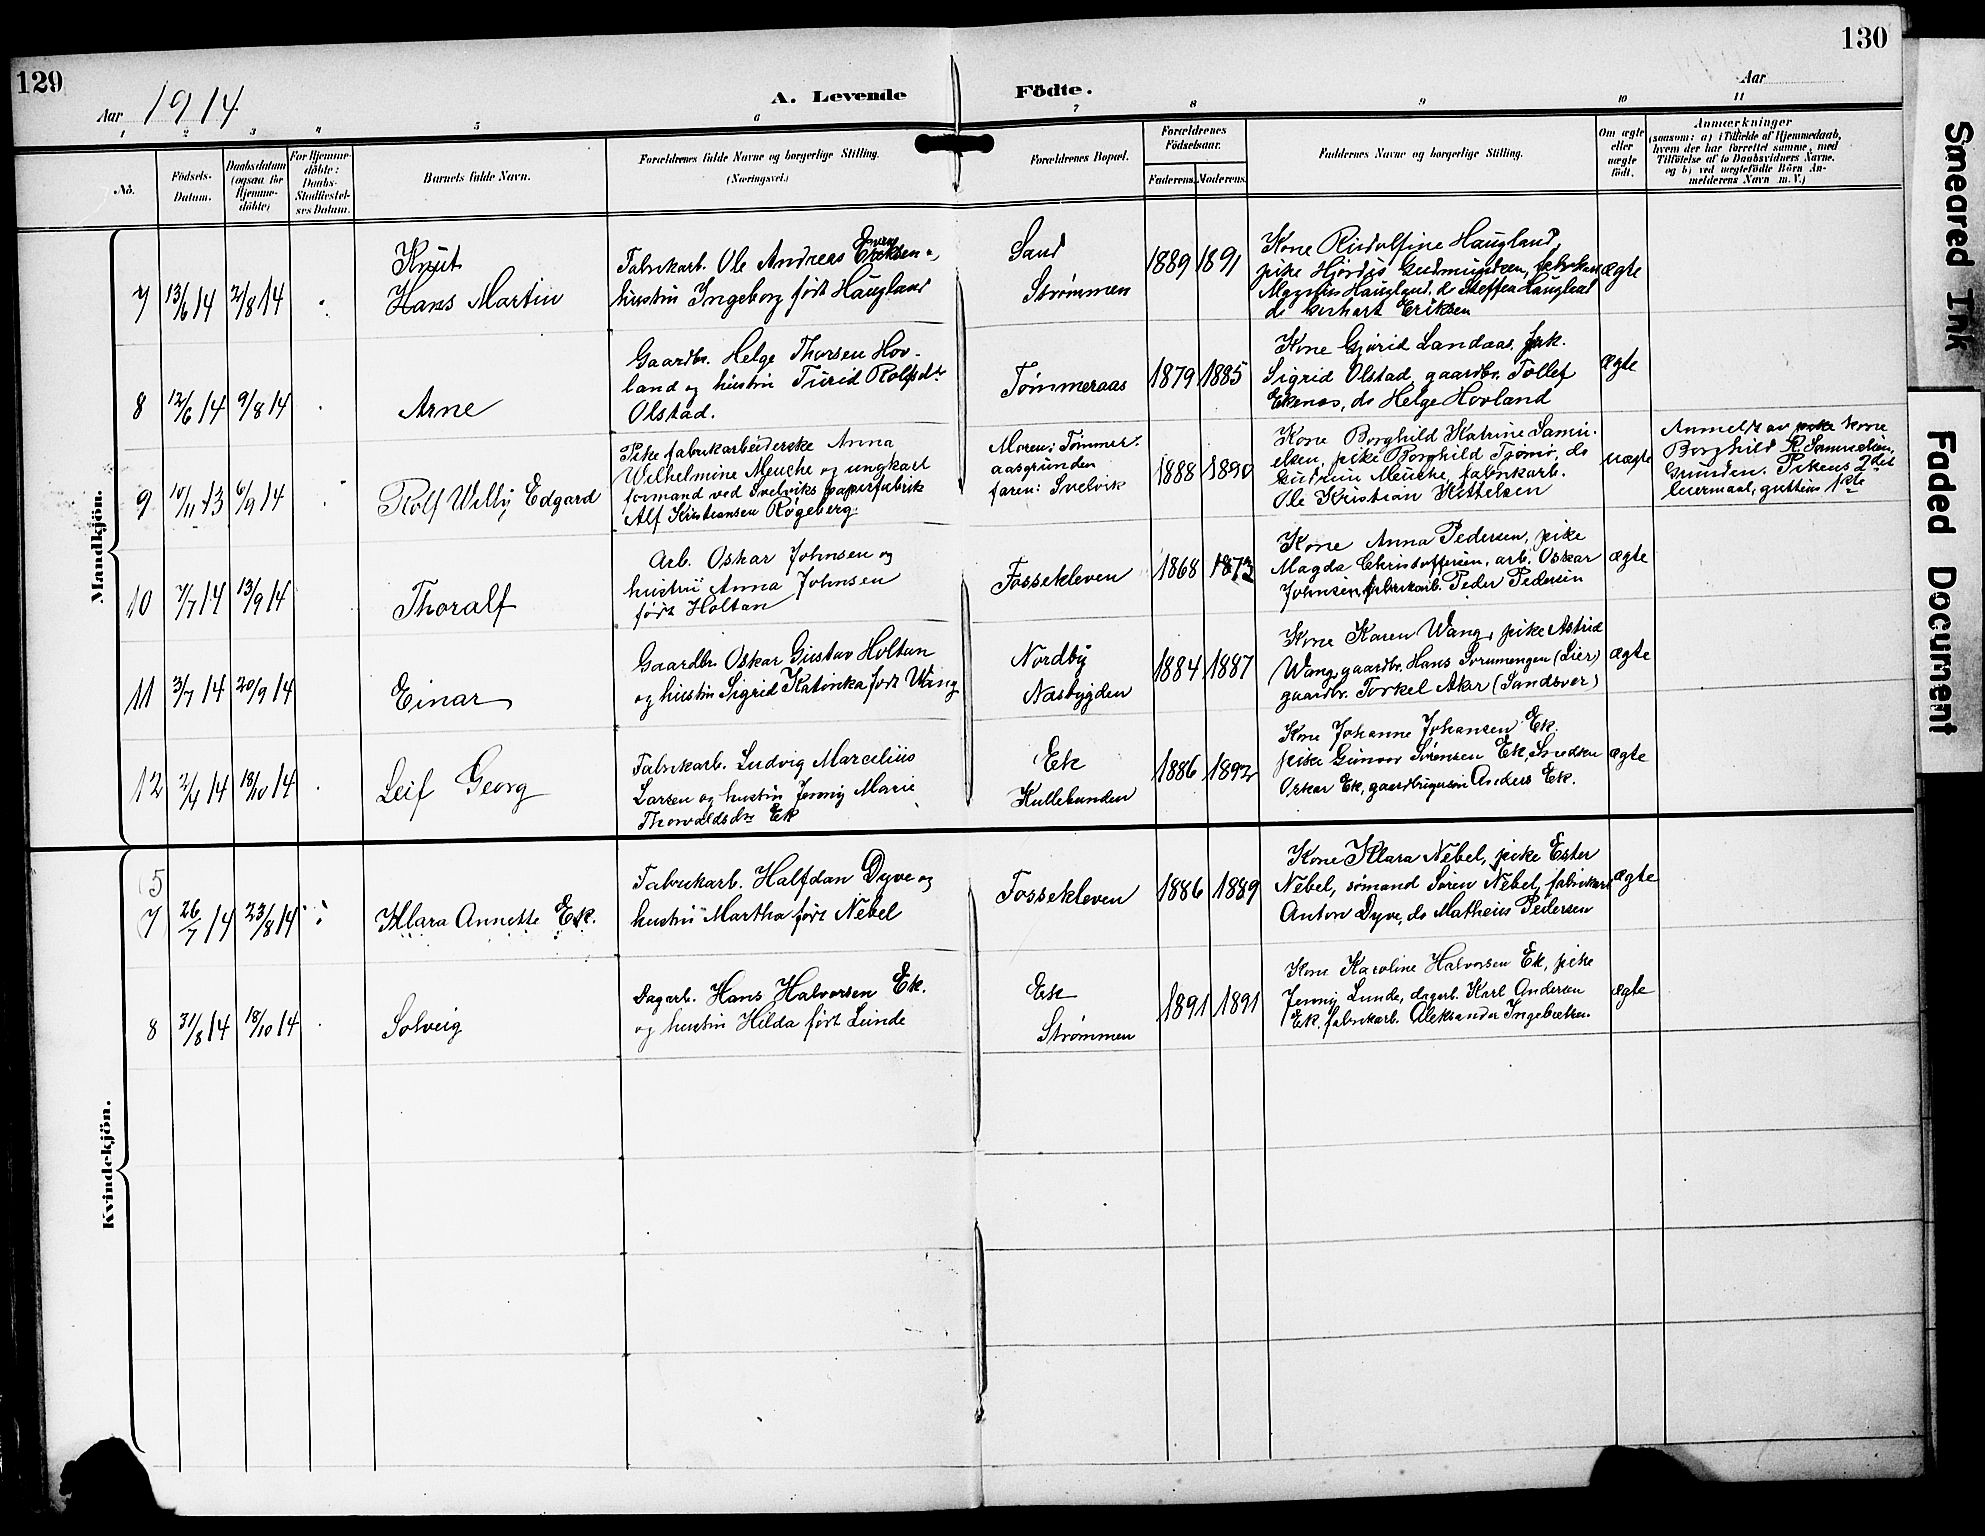 129
130
Aar 1914
A. Levende
Födte.
Aar
1 2 3 4 5 6 7 8 9 10 11
No.
Födsels-
Datum.
Daabsdatum
(ogsaa for
Hjemme-
döbte)
For Hjemme-
döbte:
Daabs-
Stadfæstel-
ses Datum.
Barnets fulde Navn.
Forældrenes fulde Navne og borgerlige Stilling.
(Næringsvei.)
Forældrenes Bopæl.
Forældrenes
Födselsaar.
Faderens.
Moderens.
Faddernes Navne og borgerlige Stilling.
Om ægte
eller
uægte
födt.
Anmærkninger
(saasom: a) i Tilfælde af Hjemmedaab,
hvem der har forrettet samme, med
Tilföielse af to Daabsvidners Navne.
og b) ved uægtefödte Börn An-
melderens Navn m. V.)
Mandkjön.
7 13/6 14 2/8 14
Knut
Hans Martin
Fabrikarb. Ole Andreas Eriksen
hustru Ingeborg født Haugland
Sand
Strømmen
1889 1891
Kone Rudolfine Haugland,
pike Hjørdis Gudmundsen, fabrikarb
Magnus Haugland, do Steffen Haugland
do Gerhart Eriksen
ægte
8 12/6 14 9/8 14
Arne
Gaardbr. Helge Thorsen Hov-
land og hustru Turid Rolfsdr
Olstad.
Tømmeraas
1879 1885
Kone Gjørid Landaas, frk.
Sigrid Olstad, gaardbr. Tollef
Ekenes, do Helge Hovland
Ægte
9 10/11 13 6/9 14
Rolf Willy Edgard
Pike fabrikarbeiderske Anna
Wilhelmine Menche og ungkarl
formand ved Svelviks papirfabrik
Alf Kristiansen Røgeberg.
Moren: Tømmer-
aasgrunden
faren: Svelvik
1888 1890
Kone Borghild Katrine Samu-
elsen, pike Borghild Tjomø, do
Gudrun Menche, fabrikarb.
Ole Kristian Kittelsen
uægte
Anmeldt av pike kone
Borghild K. Samuelsen,
Grunden. Pikens 2det
leiermaal, guttens 1ste
10 7/7 14 13/9 14
Thoralf
Arb. Oskar Johnsen og
hustru Anna Johnsen
født Holtan
Fossekleven
1868 1873
Kone Anna Pedersen, pike
Magda Christoffersen, arb. Oskar
Johnsen, fabrikarb. Peder Pedersen
ægte
11 3/7 14 20/9 14
Einar
Gaardbr. Oskar Gustav Holtan
og hustru Sigrid Katinka født Wang
Nordby
Nasbygden
1884 1887
Kone Karen Wang, pike Astrid
Wang, gaardbr. Hans Sorumengen (Lier)
gaardbr. Torkel Aker (Sandsver)
ægte
12 2/4 14 18/10 14
Leif Georg
Fabrikarb. Ludvig Marcelius
Larsen og hustru Jenny Marie
Thorvaldsdr Ek
Ek
Kullebunden
1886 1892
Kone Johanne Johansen Ek.
pike Gunvor Sørensen Ek, Snedker
Oskar Ek, gaardbrugersøn Anders Ek.
ægte
Kvindekjön.
(5
7) 26/7 14 23/8 14
Klara Annette Ek.
Fabrikarb. Halfdan Dyve og
hustru Martha født Nebel
Fossekleven
1886 1889
Kone Klara Nebel, pike Ester
Nebel, sømand Søren Nebel, fabrikarb
Anton Dyve, do Matheus Pedersen
ægte
8 31/8 14 18/10 14
Solveig
Dagarb. Hans Halvorsen Ek.
og hustru Hilda født Lunde
Ek
Strømmen
1891 1891
Kone Karoline Halvorsen Ek, pike
Jenny Lunde, dagarb. Karl Andersen
Ek, fabrikarb. Aleksander Ingebretsen.
ægte
Smeared Ink
Faded Document